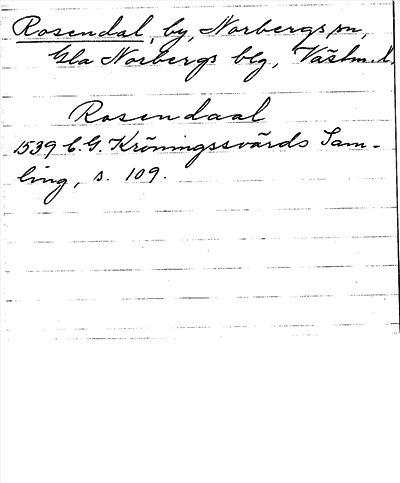 Rosendal, by, Norbergs sn,
Gla Norbergs blg, Västm. l.
Rosendaal
1539 C. G. Kröningssvärds Sam-
ling, s. 109.